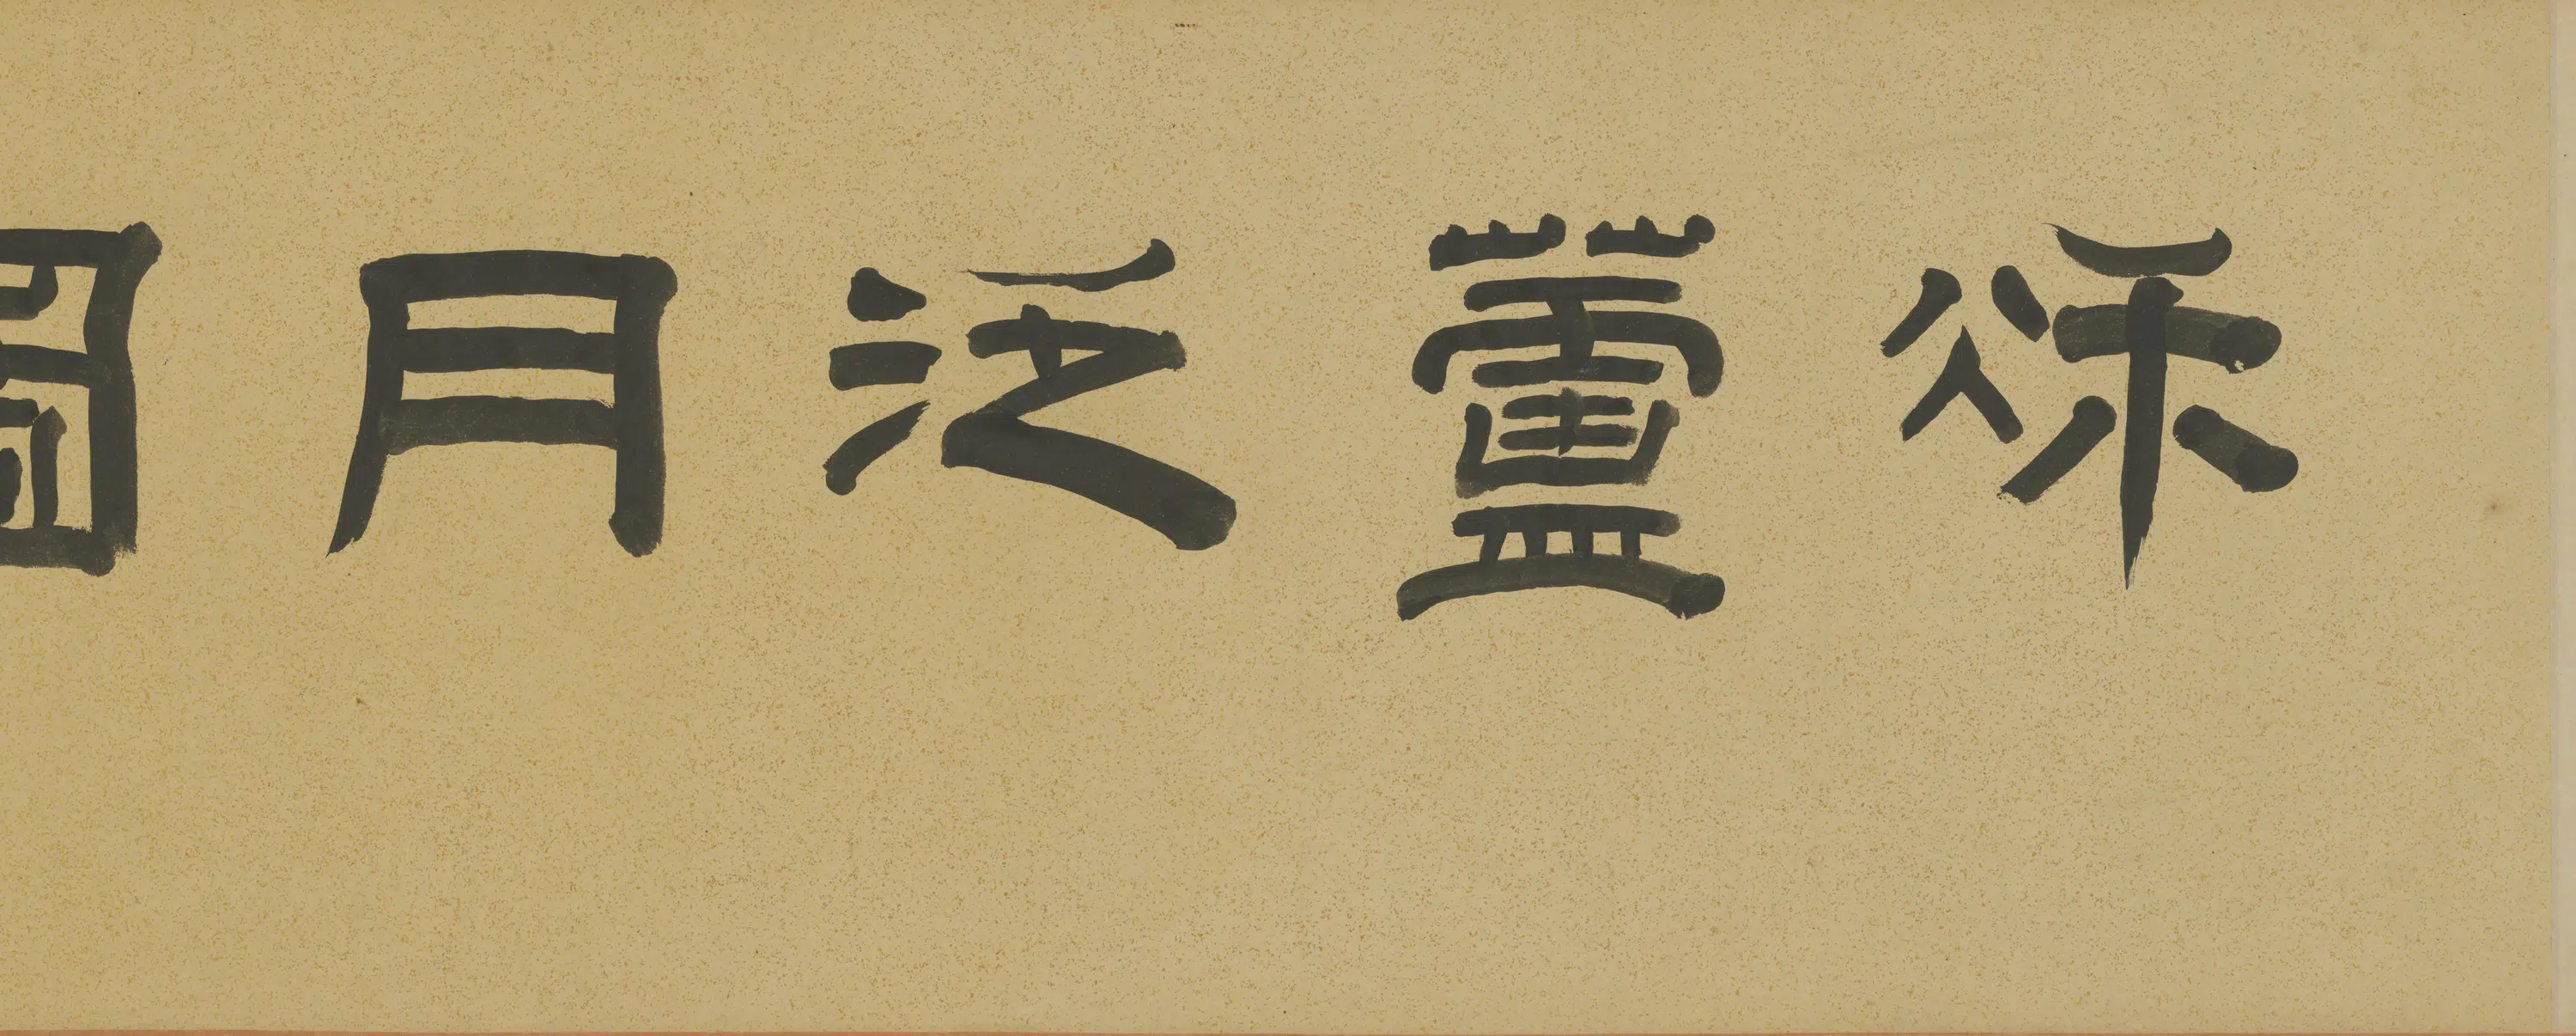 秋蘆泛月圖